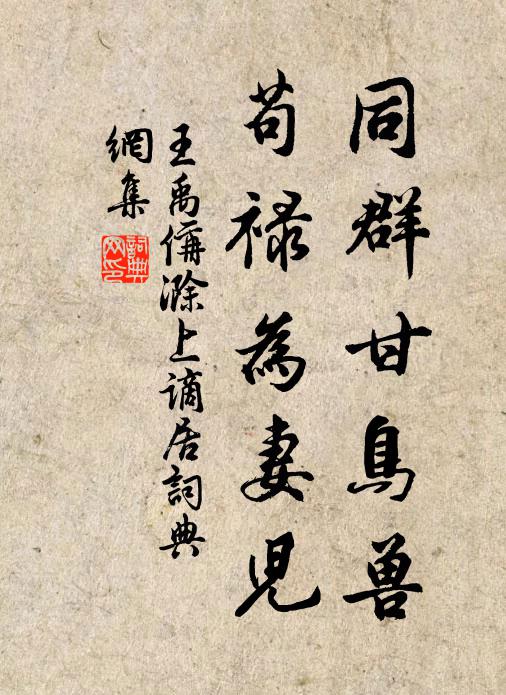 同群甘鳥兽
苟禄為妻児
王禹偁滁上谪居詞典
網集
詞典网印